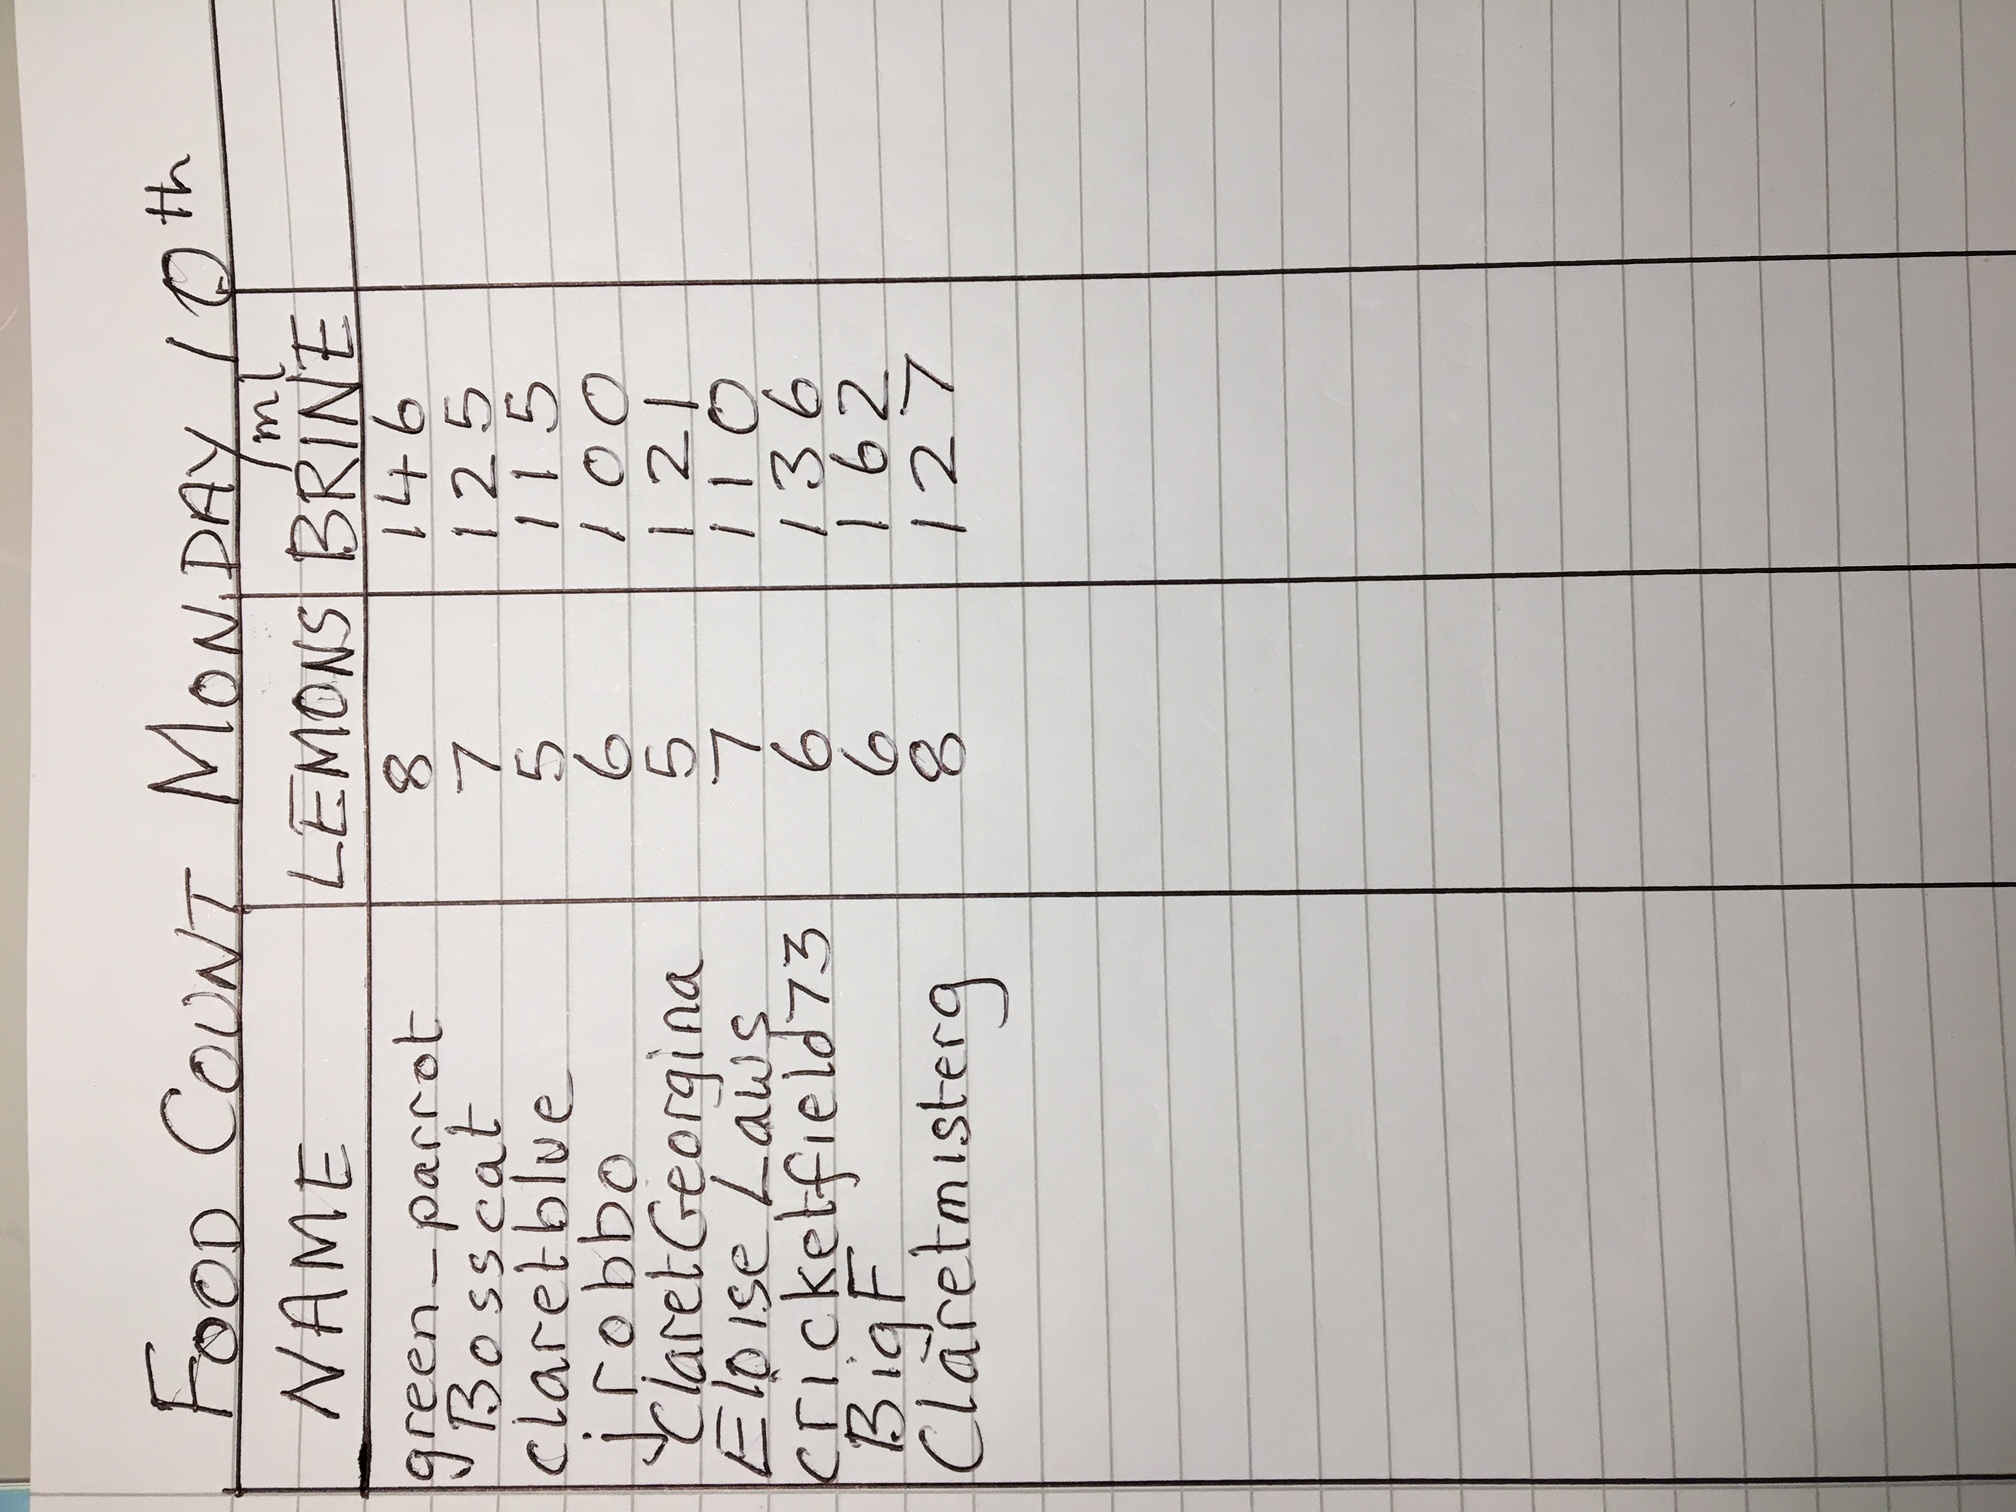 FOOD COUNT MONDAY 10th
NAME LEMONS BRINE ml
green_parrot 8 146
Bosscat 7 125
claretblue 5 115
jrobbo 6 100
claretGeorgina 5 121
Eloise Laws 7 110
cricketfield73 6 136
BigF 6 162
Claretmisterg 8 127